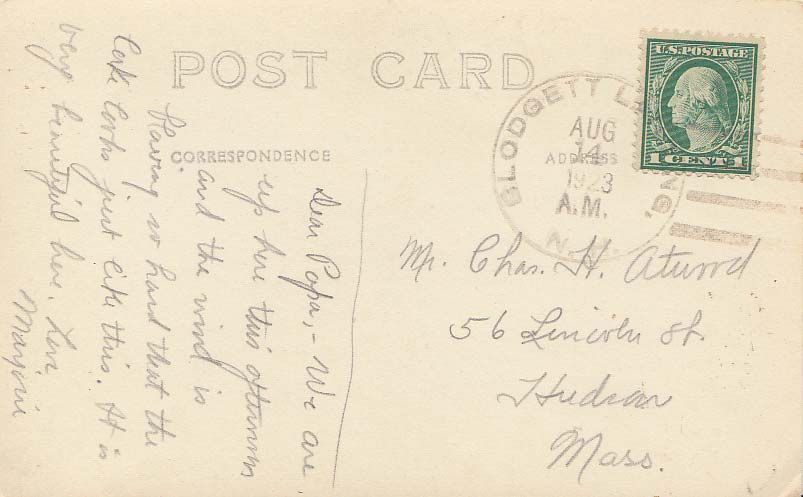 POST CARD
CORRESPONDENCE
ADDRESS
U.S. POSTAGE
1 CENT 1
BLODGETT LANDING,
N.H.
AUG
14
1923
A.M.
Dear Papa, - We are
up here this afternoon
and the wind is
so hard that the
Lake looks just like this. It is
very beautiful here. Love
Marjorie
Mr. Chas. H. Atwood
56 Lincoln St.
Hudson
Mass.